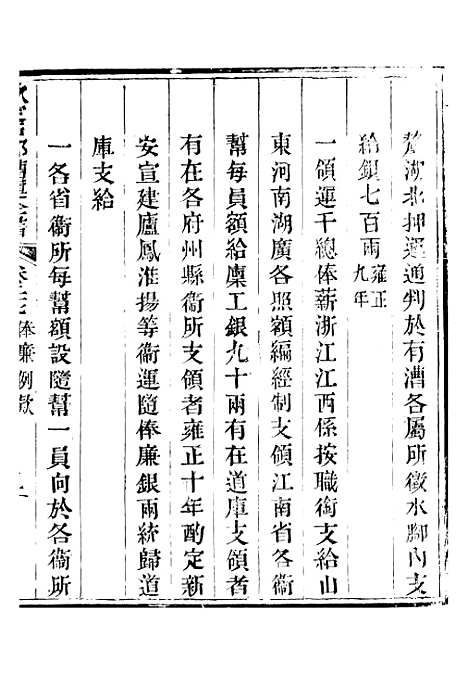 湖北押運通判於有漕各屬所徵水腳內支
給銀七百兩雍正九年
一領運千總俸薪浙江江西係按職銜支給山
東河南湖廣各照額編經制支領江南省各衞
幫每員額給廩工銀九十兩有在道庫支領者
有在各府州縣衞所支領者雍正十年酌定新
安宣建廬鳳淮揚等衞運隨俸廉銀兩統歸道
庫支給
一各省衞所每幫額設隨幫一員向於各衞所
俸廉例款